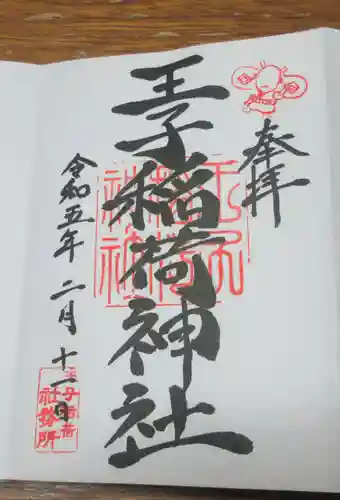 奉拝
王子稲荷神社
令和五年二月十一日
王子稲荷
社務所